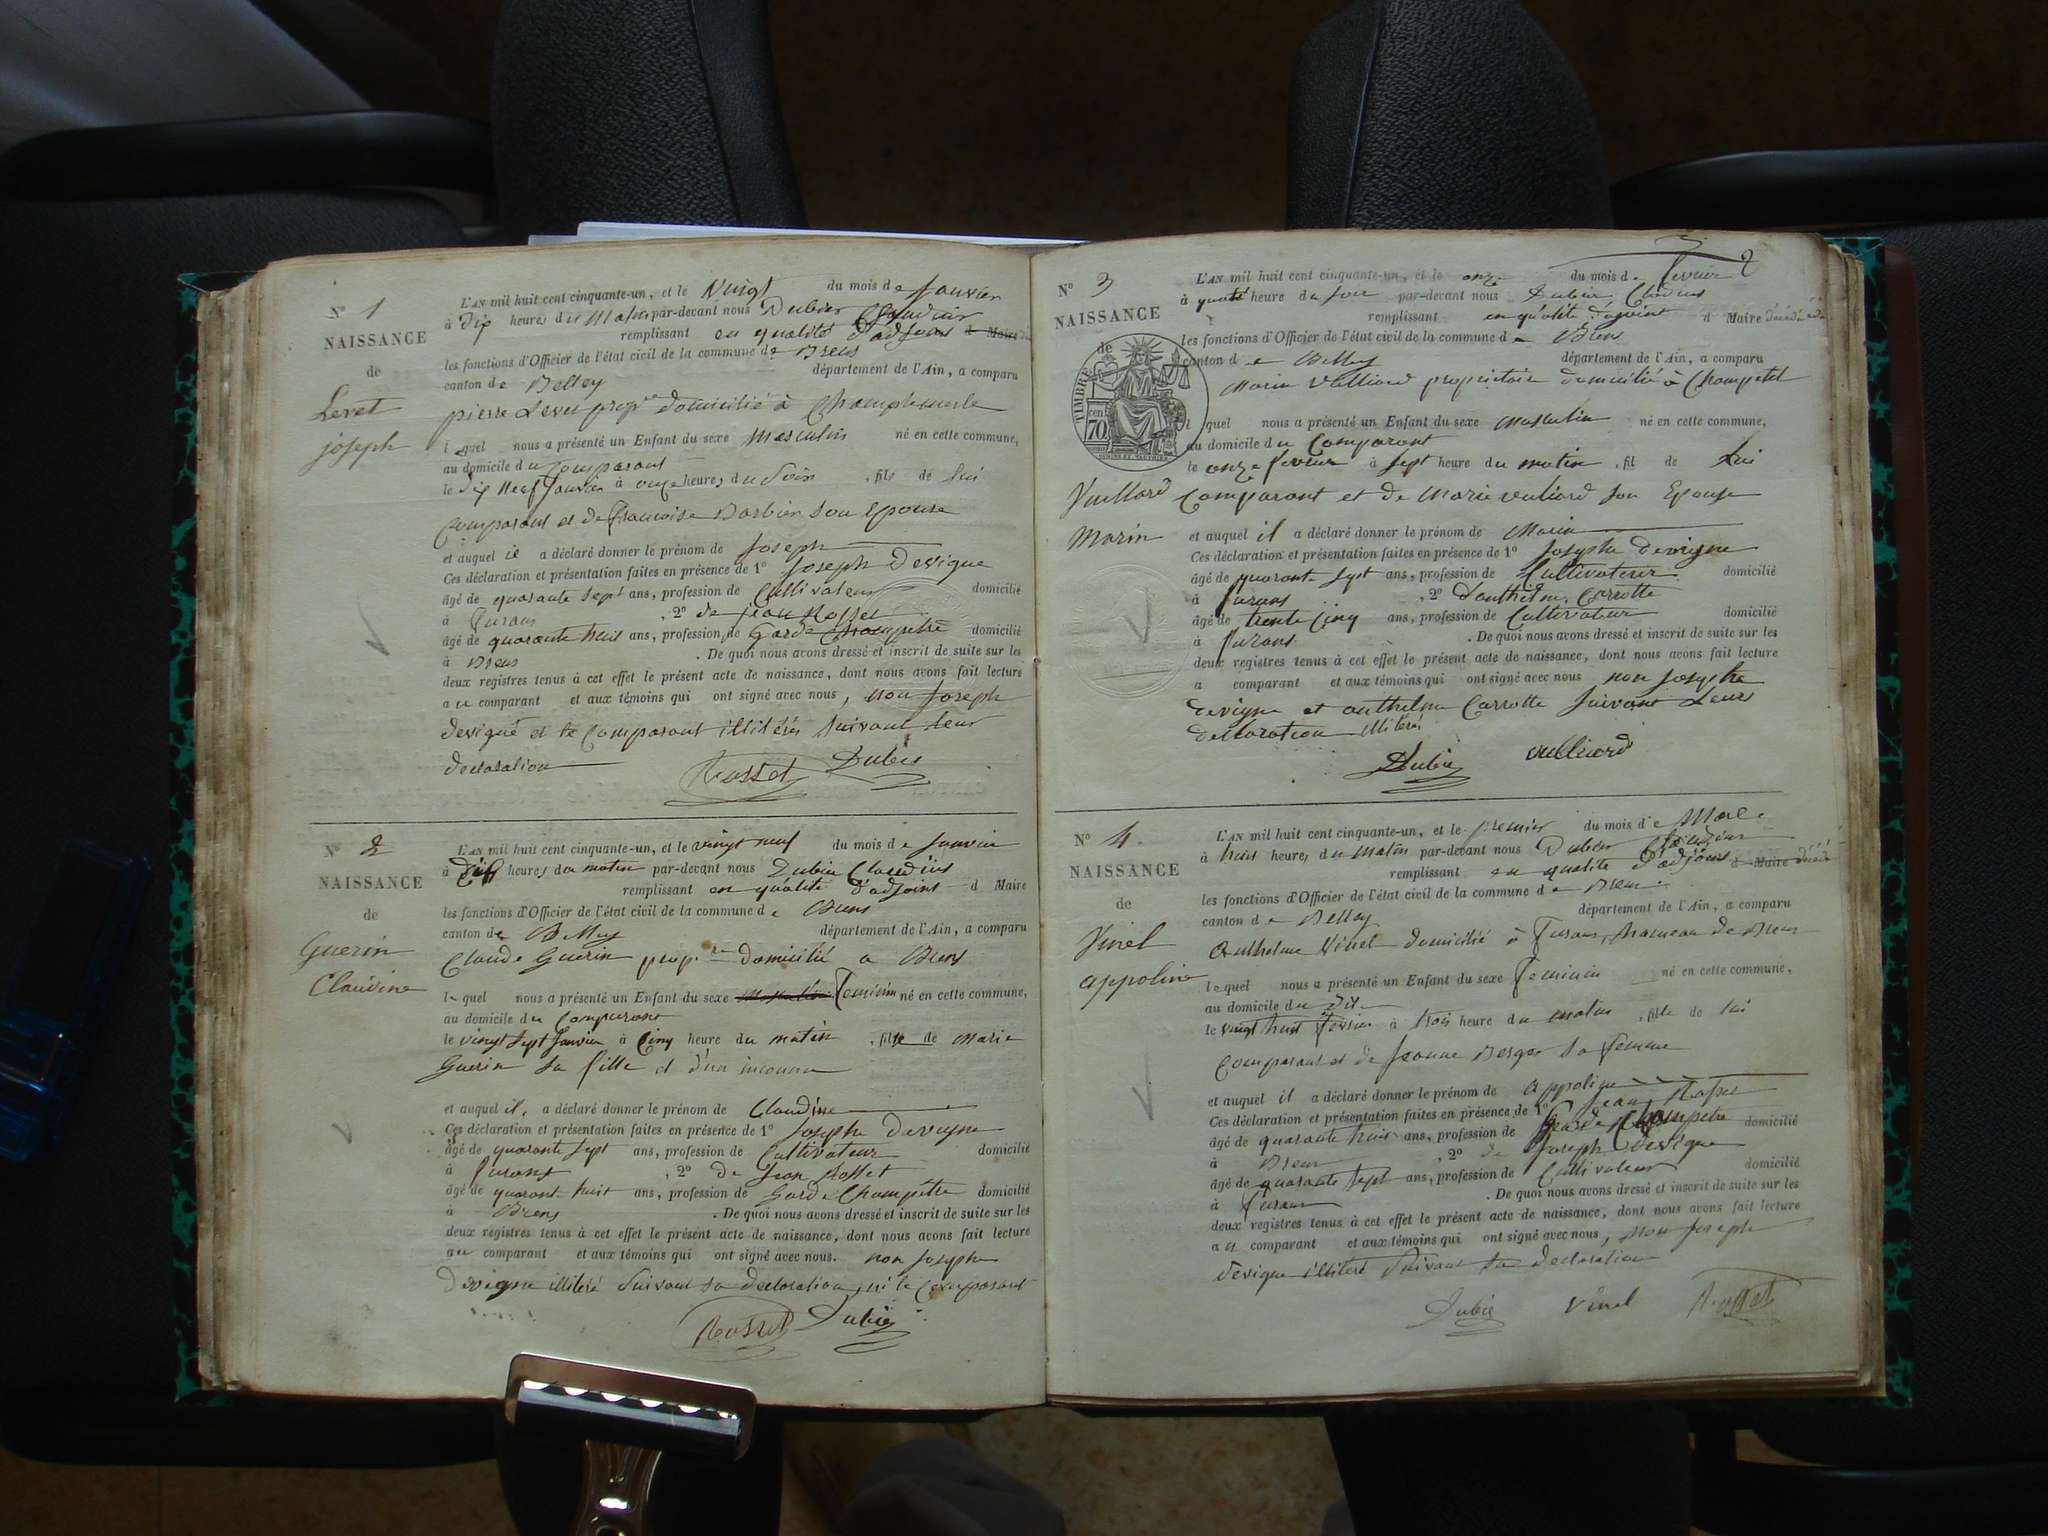 N° 1
NAISSANCE
de
Levet
joseph
L'AN mil huit cent cinquante-un, et le Vingt du mois de Janvier
à dix heures du Matin par-devant nous Dubier Claudius
remplissant en qualité d'adjoint d Maire
les fonctions d'Officier de l'état civil de la commune de Brens
canton de Belley département de l'Ain, a comparu
pierre Levet propre domicilié à
lequel nous a présenté un Enfant du sexe Masculin né en cette commune,
au domicile du comparant
le dix neuf Janvier à onze heures du Soir, fils de lui
comparant et de francoise Barbier son Epouse
et auquel il a déclaré donner le prénom de Joseph
Ces déclaration et présentation faites en présence de 1° Joseph Devigne
âgé de quarante sept ans, profession de Cultivateur domicilié
à furans, 2° de jean Rosset
âgé de quarante huit ans, profession de Garde Champêtre domicilié
à Brens . De quoi nous avons dressé et inscrit de suite sur les
deux registres tenus à cet effet le présent acte de naissance, dont nous avons fait lecture
au comparant et aux témoins qui ont signé avec nous, non Joseph
devigne et le Comparant illitérés suivant leur
declaration
Rosset Dubier
N° 2
NAISSANCE
de
Guerin
Claudine
L'AN mil huit cent cinquante-un, et le vingt neuf du mois de Janvier
à heures du matin par-devant nous Dubier Claudius
remplissant en qualité d'adjoint d Maire
les fonctions d'Officier de l'état civil de la commune de Brens
canton de Belley département de l'Ain, a comparu
Claude Guerin prop.re domicilié a Brens
lequel nous a présenté un Enfant du sexe Masculin feminin né en cette commune,
au domicile du Comparant
le vingt sept Janvier à Cinq heure du matin, fille de marie
Guerin sa fille et d'un inconnu
et auquel il, a déclaré donner le prénom de Claudine
Ces déclaration et présentation faites en présence de 1° Josephe Devigne
âgé de quarante sept ans, profession de Cultivateur domicilié
à furans, 2° de Jean Rosset
âgé de quarant huit ans, profession de Garde Champêtre domicilié
à Brens . De quoi nous avons dressé et inscrit de suite sur les
deux registres tenus à cet effet le présent acte de naissance, dont nous avons fait lecture
au comparant et aux témoins qui ont signé avec nous. non josephe
Devigne illiteré suivant sa declaration ni le Comparant
Rosset Dubier
2
N° 3
NAISSANCE
de
TIMBRE
cen
70
Vuillard
Marin
L'AN mil huit cent cinquante-un, et le onze du mois de fevrier
à quatre heure du soir par-devant nous Dubier Claudius
remplissant en qualité d'adjoint d Maire
les fonctions d'Officier de l'état civil de la commune de Brens
canton de Belley département de l'Ain, a comparu
Marin Vulliard propriétaire domicilié à Champetel
lequel nous a présenté un Enfant du sexe Masculin né en cette commune,
au domicile du Comparant
le onze fevrier à sept heure du matin, fil de Lui
Comparant et de Marie vuliard son Epouse
et auquel il a déclaré donner le prénom de Marin
Ces déclaration et présentation faites en présence de 1° Josephe Devigne
âgé de quarante sept ans, profession de Cultivateur domicilié
à furans, 2° d'anthelme Carrotte
âgé de trente cinq ans, profession de Cultivateur domicilié
à furans . De quoi nous avons dressé et inscrit de suite sur les
deux registres tenus à cet effet le présent acte de naissance, dont nous avons fait lecture
a comparant et aux témoins qui ont signé avec nous non Josephe
devigne et anthelme Carrotte suivant Leurs
declaration illiterés
Dubier vulliard
N° 4
NAISSANCE
de
Vinel
appoline
L'AN mil huit cent cinquante-un, et le premier du mois de Mars
à huit heures du Matin par-devant nous Dubier Claudius
remplissant en qualité d'adjoint d Maire
les fonctions d'Officier de l'état civil de la commune de Brens
canton de Belley département de l'Ain, a comparu
Anthelme Vinel domicilié à furans, hameau de Brens
lequel nous a présenté un Enfant du sexe feminin né en cette commune,
au domicile du dit
le vingt huit fevrier à trois heure du matin, fille de lui
comparant et de Jeanne Berger sa femme
et auquel il a déclaré donner le prénom de appoline
Ces déclaration et présentation faites en présence de 1° Jean Rosset
âgé de quarante huit ans, profession de Garde Champêtre domicilié
à Brens, 2° de Joseph Devigne
âgé de quarante sept ans, profession de Cultivateur domicilié
à furans . De quoi nous avons dressé et inscrit de suite sur les
deux registres tenus à cet effet le présent acte de naissance, dont nous avons fait lecture
au comparant et aux témoins qui ont signé avec nous, non Joseph
devigne illiteré suivant sa declaration
Dubier Vinel Rosset